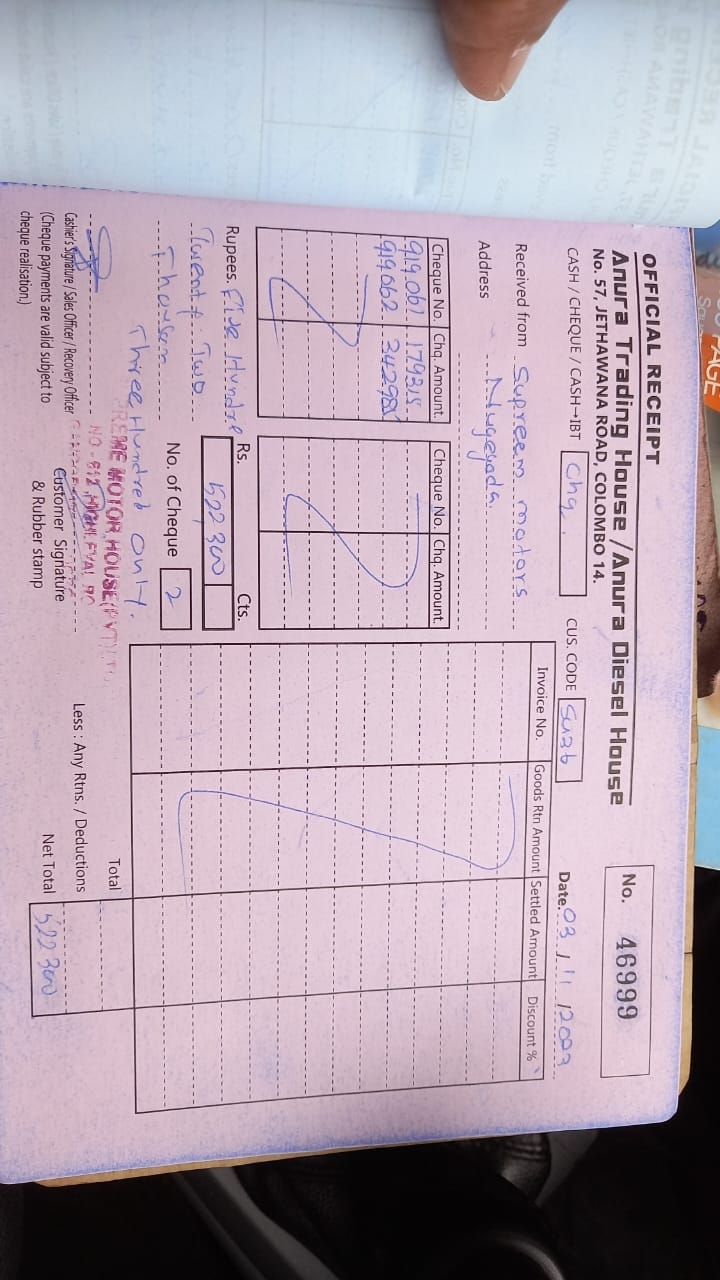 OFFICIAL RECEIPT
Anura Trading House / Anura Diesel House
No. 57, JETHAWANA ROAD, COLOMBO 14.
No. 46999
CASH / CHEQUE / CASH→IBT Chq.
CUS. CODE
Date. 03 / 11 / 2023
Received from Supreem motors
Address Nugegoda.
Cheque No. Chq. Amount
919061 179215
919062
Cheque No. Chq. Amount
Invoice No. Goods Rtn Amount Settled Amount Discount %
Rupees. Five Hundred
Twenty Two
Thousan
Three Hundred only.
Rs. Cts.
522,300
No. of Cheque 2
Cashier's Signature / Sales Officer / Recovery Officer
(Cheque payments are valid subject to
cheque realisation.)
MOTOR HOUSE
Customer Signature
& Rubber stamp
Total
Less : Any Rtns. / Deductions
Net Total 522 300
PAGE